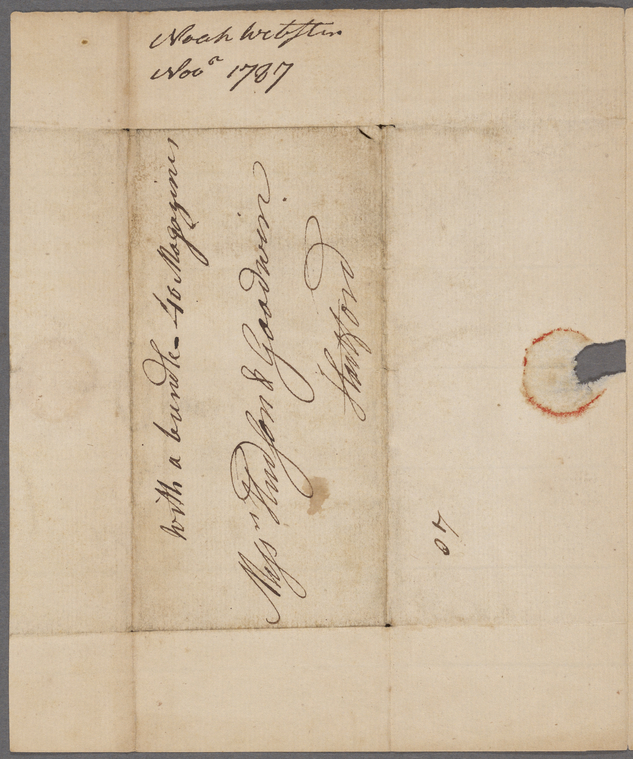 Noah Webster
Novr 1787
With a bundle - 40 Magazines
Messrs Hudson & Goodwin.
Hartford